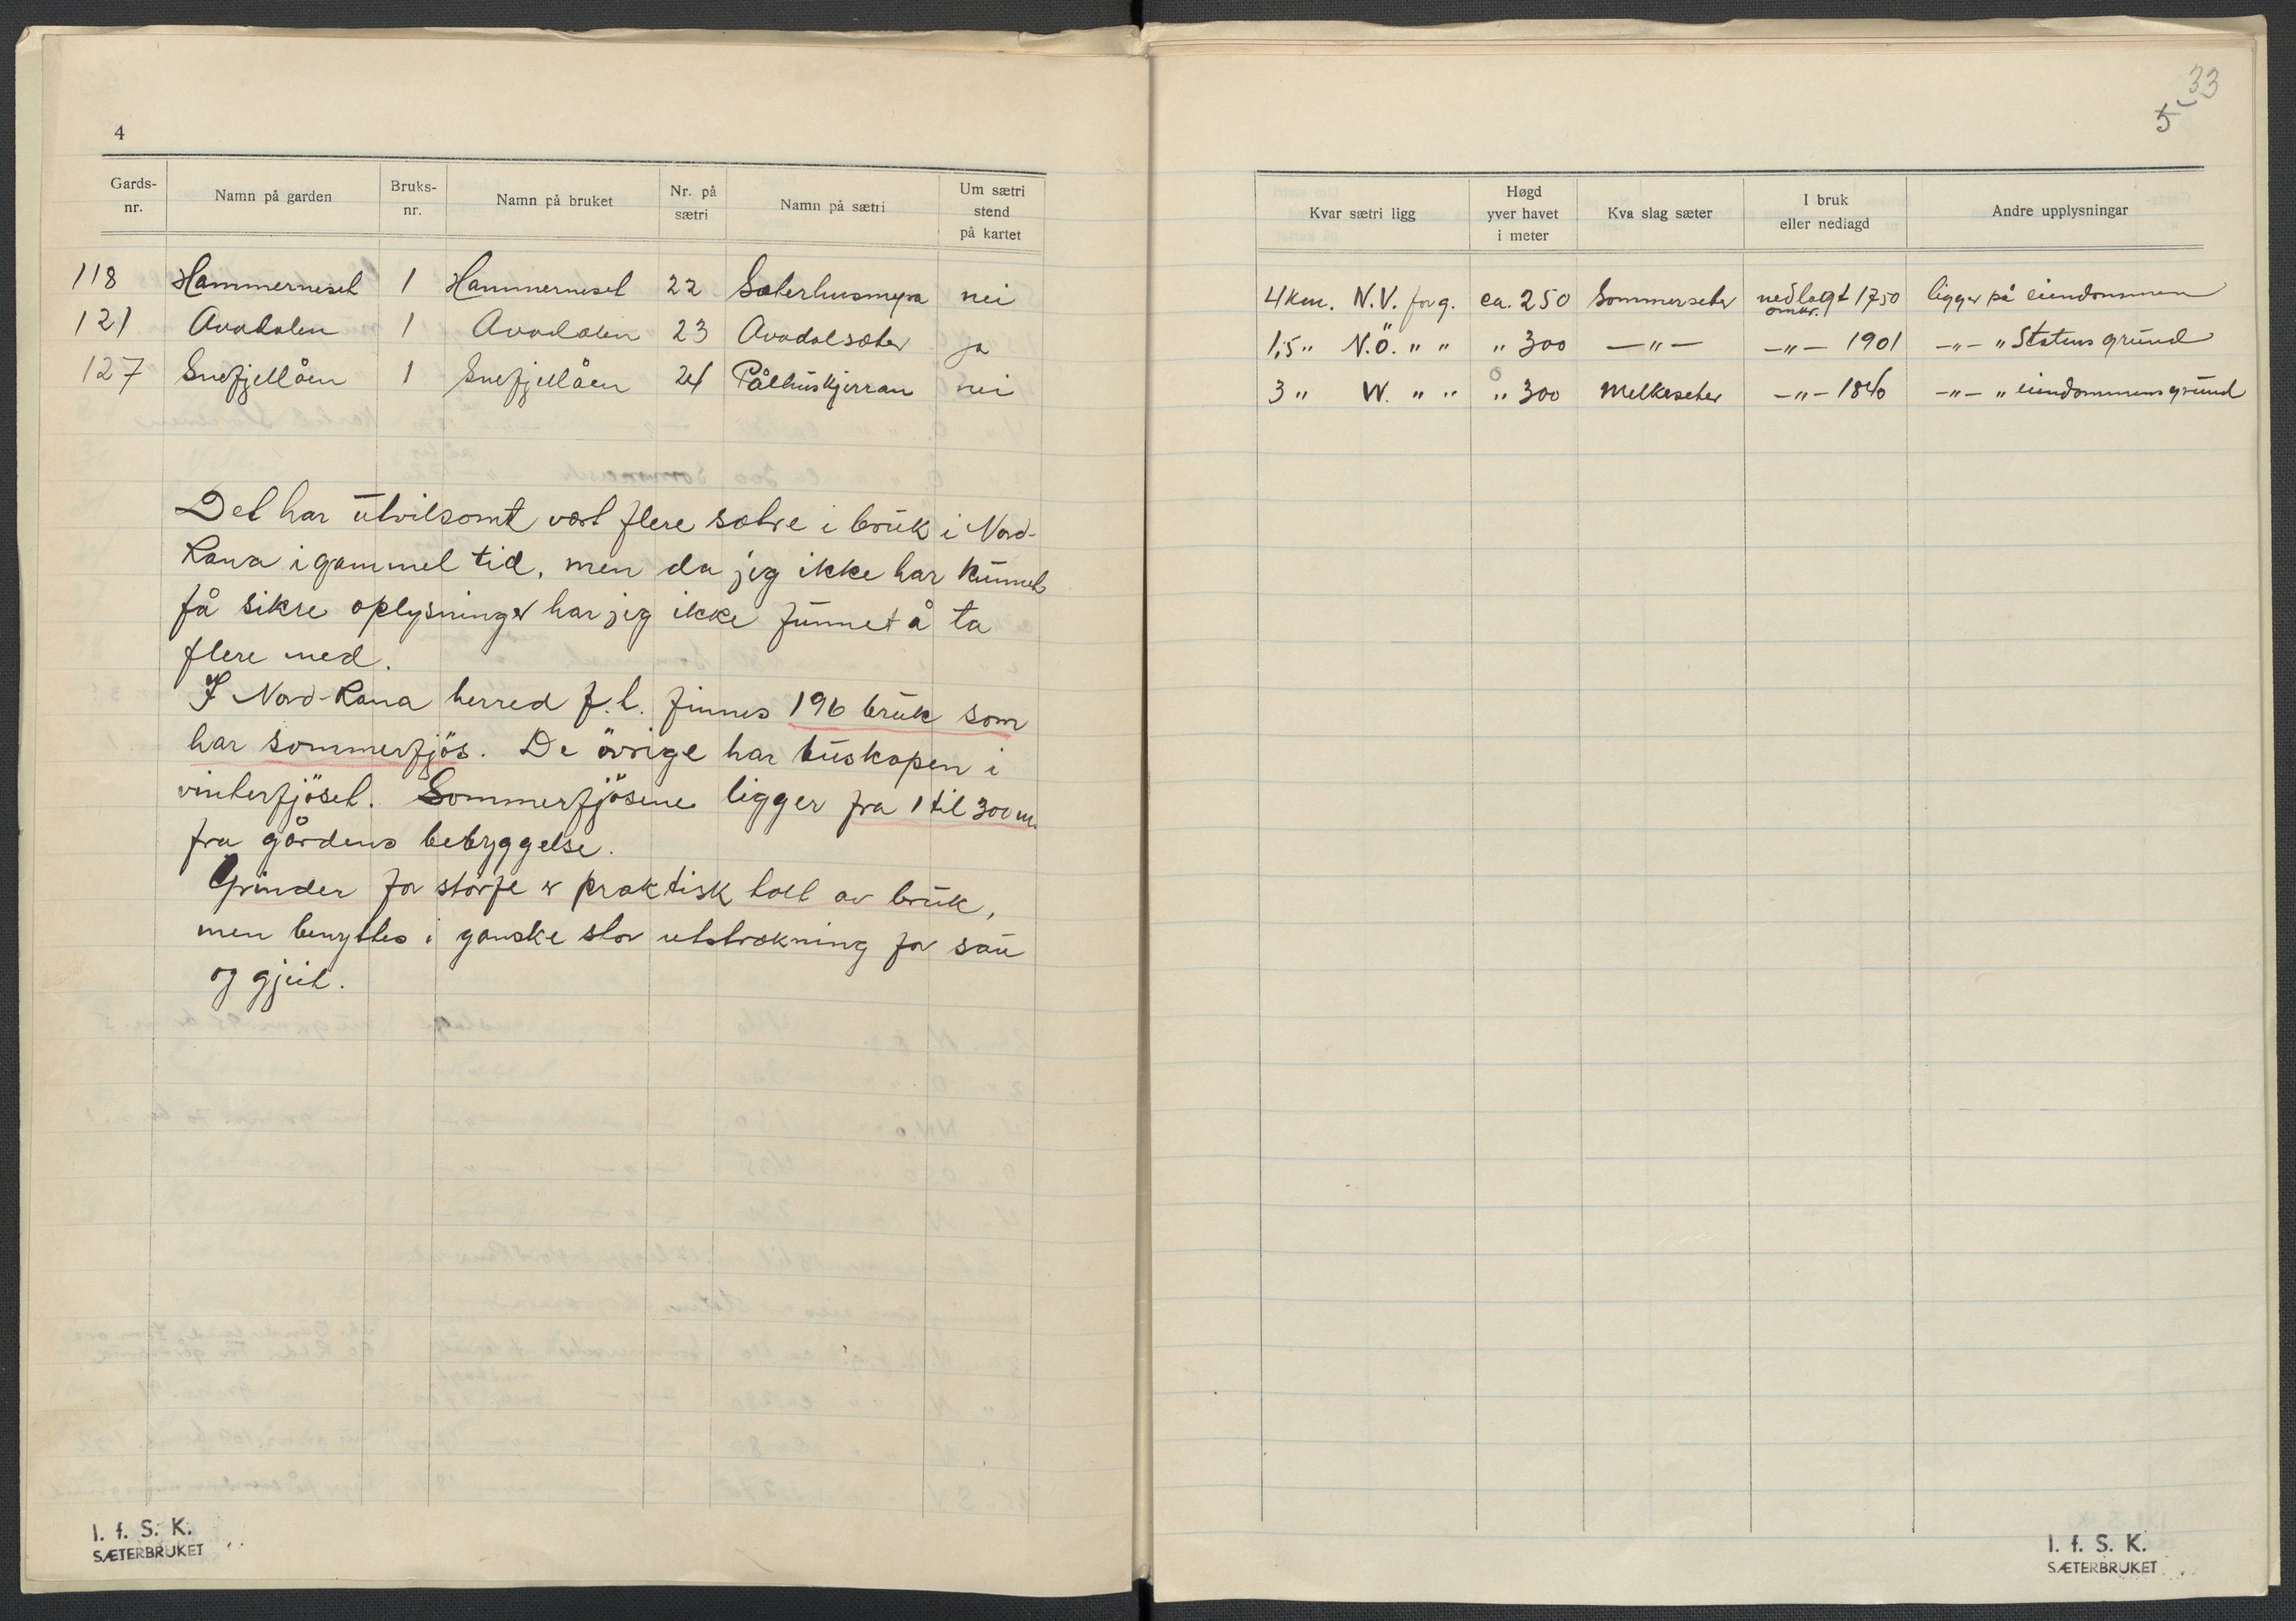 4
Gards-nr. Namn på garden Bruks-nr. Namn på bruket Nr. på sætri Namn på sætri Um sætri stend på kartet
118 Hammerneset 1 Hammerneset 22 Sæterhusmyra nei
121 Avadalen 1 Avadalen 23 Avadalsæter ja
127 Snefjellåen 1 Snefjellåen 24 Pålhuskjerran nei
Det har utvilsomt vært flere sætre i bruk i Nord-
Rana i gammel tid, men da jeg ikke har kunnet
få sikre oplysninger har jeg ikke funnet å ta
flere med.
I Nord-Rana herred f.l. finnes 196 bruk som
har sommerfjös. De övrige har buskapen i
vinterfjöset. Sommerfjösene ligger fra 1 til 300 m.
fra gårdens bebyggelse.
Grinder for storfe er praktisk talt av bruk,
men benyttes i ganske stor utstrækning for sau
og gjeit.
I. f. S. K.
SÆTERBRUKET
33
5
Kvar sætri ligg Høgd yver havet i meter Kva slag sæter I bruk eller nedlagd Andre upplysningar
4 km. N.V. for g. ca. 250 Sommerseter nedlagt omkr. 1750 ligger på eiendommen
1,5 " N.Ö. " " " 300 —"— —"— 1901 —"— " Statens grund
3 " W. " " " 300 Melkeseter —"— 1840 —"— " eiendommens grund
I. f. S. K.
SÆTERBRUKET